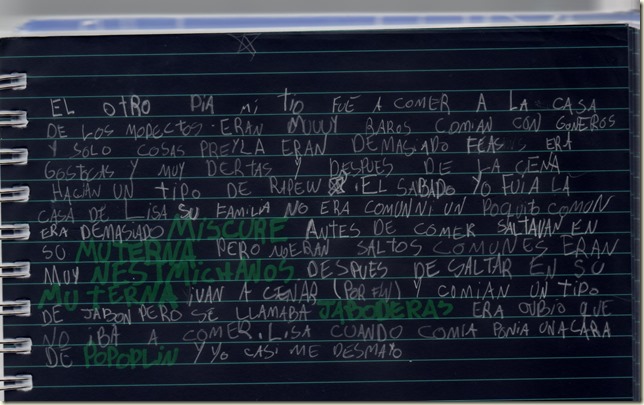 EL OTRO DIA MI TIO FUE A COMER A LA CASA
DE LOS MODECTOS. ERAN MUUY RAROS COMIAN CON GONEROS
Y SOLO COSAS PREYLA ERAN DEMASIADO FEAS ERA
GOSTECAS Y MUY DERTAS Y DESPUES DE LA CENA
HACIAN UN TIPO DE RAPEW. EL SABADO YO FUI A LA
CASA DE LISA SU FAMILIA NO ERA COMUN NI UN POQUITO COMUN
ERA DEMASIADO MISCURE ANTES DE COMER SALTAVAN EN
SU MUTERNA PERO NO ERAN SALTOS COMUNES ERAN
MUY NESTMICHANOS DESPUES DE SALTAR EN SU
MUTERNA IVAN A CENAR (POR FIN) Y COMIAN UN TIPO
DE JABON PERO SE LLAMABA JABODERAS ERA OUBIO QUE
NO IBA A COMER. LISA CUANDO COMIA PONIA UNA CARA
DE POPOPLIN Y YO CASI ME DESMAYO.